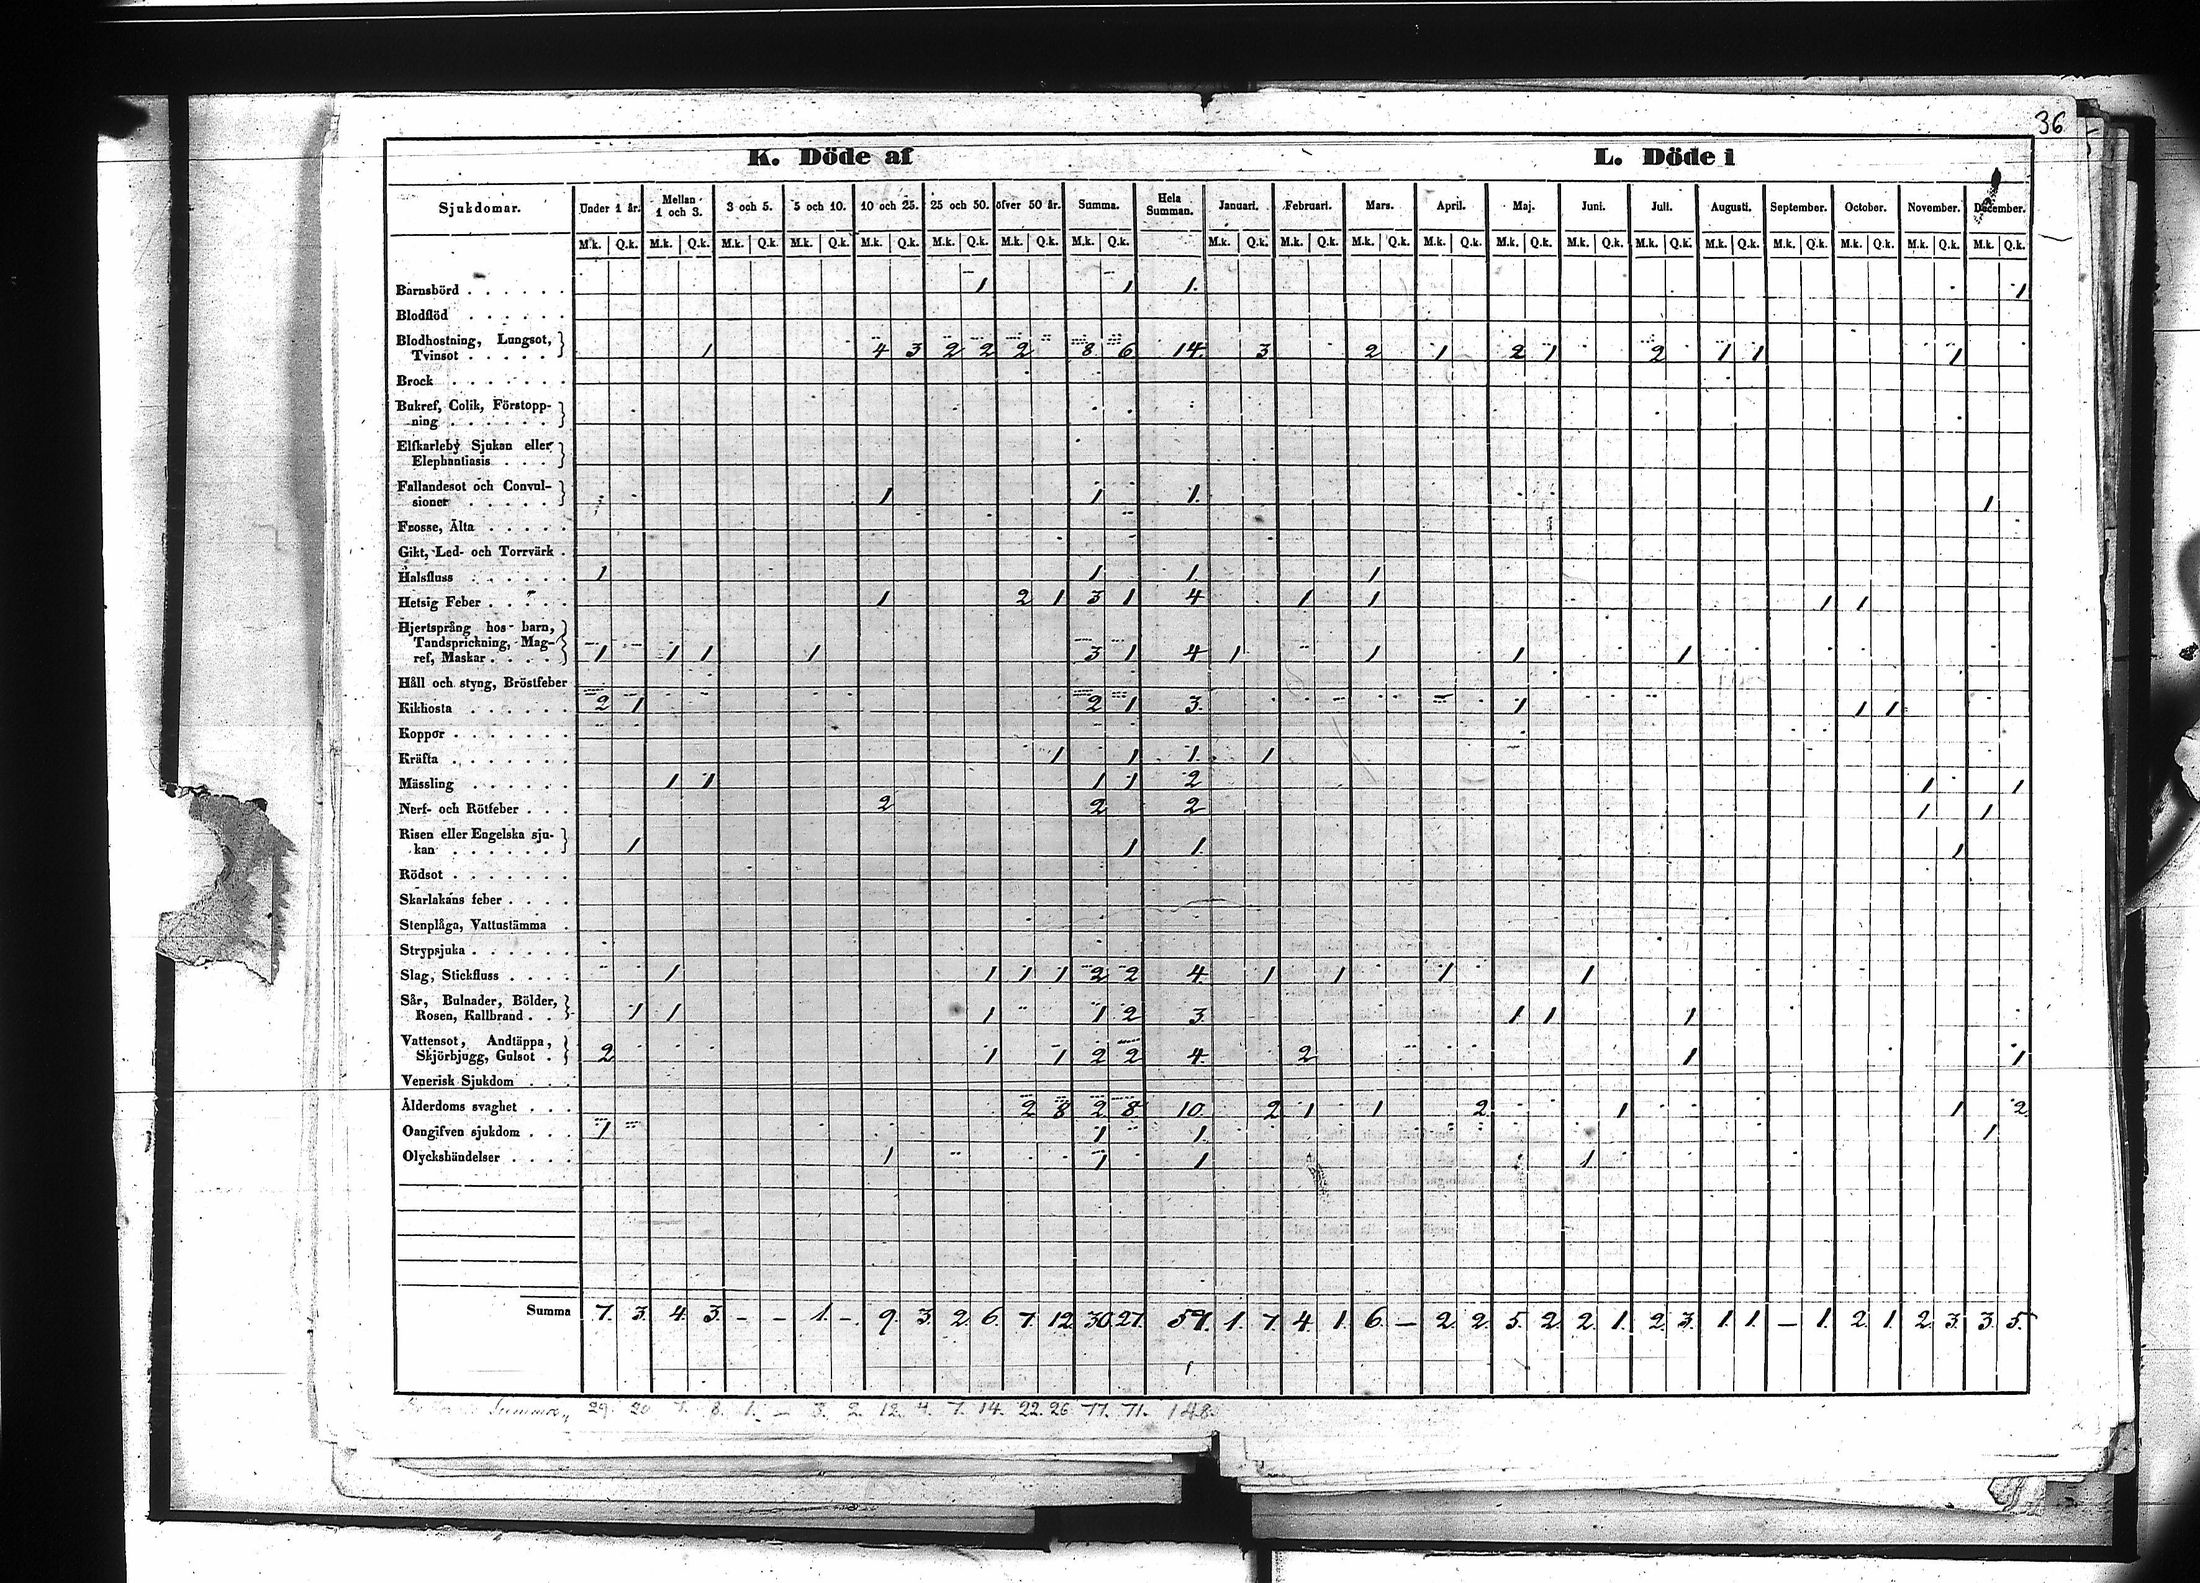 36
K. Döde af L. Döde i
Sjukdomar. Under 1 år. Mellan 1 och 3. 3 och 5. 5 och 10. 10 och 25. 25 och 50. öfver 50 år. Summa. Hela Summan. Januari. Februari. Mars. April. Maj. Juni. Juli. Augusti. September. October. November. December.
M.k. Q.k. M.k. Q.k. M.k. Q.k. M.k. Q.k. M.k. Q.k. M.k. Q.k. M.k. Q.k. M.k. Q.k. M.k. Q.k. M.k. Q.k. M.k. Q.k. M.k. Q.k. M.k. Q.k. M.k. Q.k. M.k. Q.k. M.k. Q.k. M.k. Q.k. M.k. Q.k. M.k. Q.k. M.k. Q.k.
Barnsbörd . . . . . . 1 1 1. 1
Blodflöd . . . . . .
Blodhostning, Lungsot,
Tvinsot . . . . . 1 4 3 2 2 2 8 6 14. 3 2 1 2 1 2 1 1 1
Brock . . . . . . .
Bukref, Colik, Förstopp-
ning . . . . . .
Elfkarleby Sjukan eller
Elephantiasis . . .
Fallandesot och Convul-
sioner . . . . . 1 1 1. 1
Frosse, Älta . . . . .
Gikt, Led- och Torrvärk .
Halsfluss . . . . . . 1 1 1. 1
Hetsig Feber . . . . . 1 2 1 3 1 4 1 1 1 1
Hjertsprång hos barn,
Tandsprickning, Mag-
ref, Maskar . . . . 1 1 1 1 3 1 4 1 1 1 1
Håll och styng, Bröstfeber
Kikhosta . . . . . . 2 1 2 1 3. 1 1 1
Koppor . . . . . . .
Kräfta . . . . . . . 1 1 1. 1
Mässling . . . . . . 1 1 1 1 2 1 1
Nerf- och Rötfeber . . . 2 2 2 1 1
Risen eller Engelska sju-
kan . . . . . . 1 1 1. 1
Rödsot . . . . . . .
Skarlakans feber . . . .
Stenplåga, Vattustämma .
Strypsjuka . . . . . .
Slag, Stickfluss . . . . 1 1 1 1 2 2 4. 1 1 1 1
Sår, Bulnader, Bölder,
Rosen, Kallbrand . . 1 1 1 1 2 3. 1 1 1
Vattensot, Andtäppa,
Skjörbjugg, Gulsot . 2 1 1 2 2 4. 2 1 1
Venerisk Sjukdom . . .
Ålderdoms svaghet . . . 2 8 2 8 10. 2 1 1 2 1 1 2
Oangifven sjukdom . . . 1 1 1. 1
Olyckshändelser . . . . 1 1 1 1
Summa 7. 3. 4. 3. - - 1. -. 9. 3. 2. 6. 7. 12. 30. 27. 57. 1. 7. 4. 1. 6. - 2. 2. 5. 2. 2. 1. 2. 3. 1. 1. - 1. 2. 1. 2. 3. 3. 5.
Summa 29. 20 7. 8. 1. - 3. 2. 12. 4. 7. 14. 22. 26 77. 71. 148.